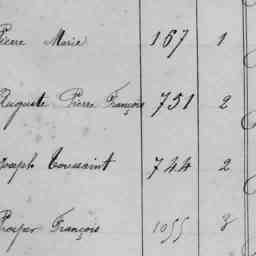 Pierre Marie 167 1
Auguste Pierre François 751 2
Joseph Toussaint 744 2
Prosper François 1055 3